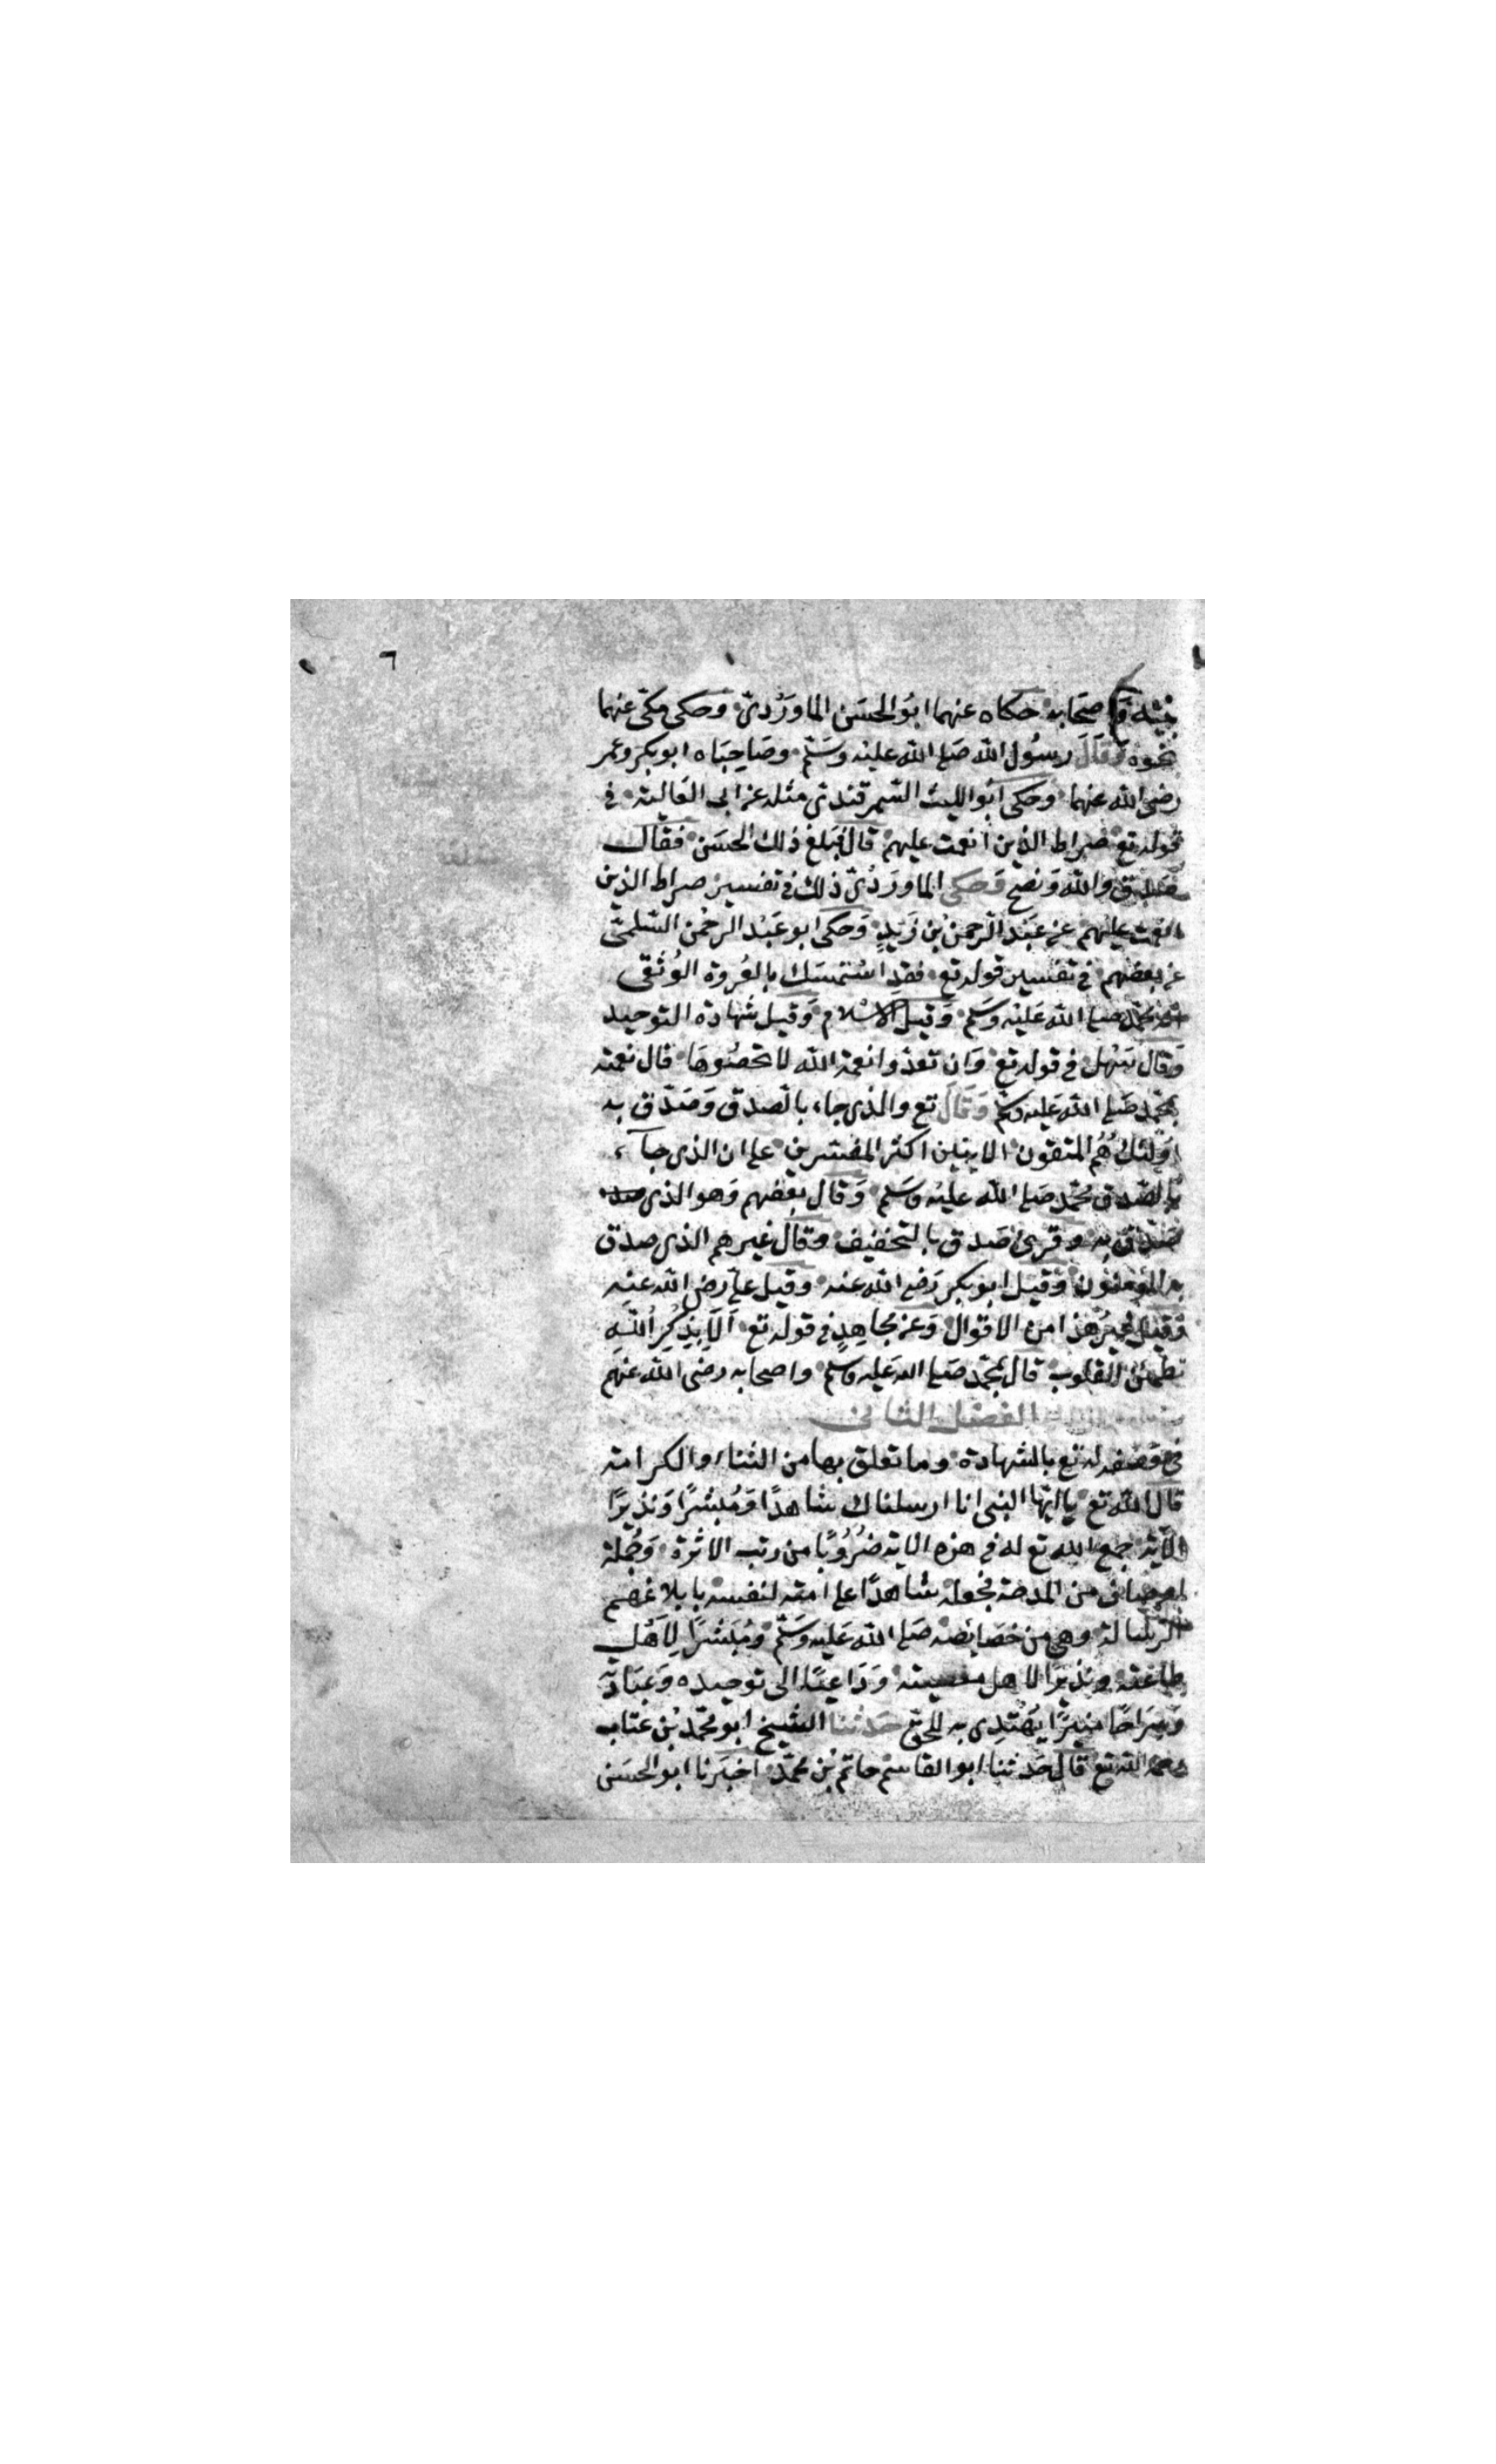 ٦
بيته وَاصحَابه حكاه عنهما ابُو الحسَن الماوَرْديّ وحكى مكّى عنهما
نحوه وَقَالَ رسُول الله صَلى الله عليْه وسَلّم وصَاحِبَاه ابو بكر وعمر
رضى الله عنهما وحكى ابُو الليث السّمرقندىّ مثله عن ابى العَالية فى
قوله تع صراط الذين انعمت عليهم قال فبَلغ ذلك الحسَن فقال
صَدق والله وَنصح وَحكى الماورَدْىّ ذلك فى تفسير صراط الذين
انعمت عليهم عن عبَد الرّحمن بْن زَيدٍ وَحكى ابو عَبْد الرحْمن السّلمىّ
عن بعضهم فى تفسير قوله تع فقد اسْتمسَك بالعُروة الوُثقى
انه محمّد صلى الله عَليْه وسَلم وَقيل الاسْلام وَقيل شهَادة التوحيد
وَقال سَهْل فى قوله تع وَان تعدّوا نعمة الله لا تحصُوهَا قال نعمته
بمحمّد صَلى الله عَليه وسَلم وَقَالَ تع والذى جاء بالصدق وَصَدّق به
اوَلئك هُم المتقون الايتين اكثر المفسّرين على ان الذى جآء
بالصّدق محُمّد صَلى الله عليْه وسَلم وَقال بعْضهم وَهو الذى
صَدّق به وقرئ صَدق بالتخفيف وقال غيرهم الذى صدق
به المؤمنون وَقيل ابو بكر رَضى الله عنه وقيل علىّ رضى الله عنه
وَقيل غيْرُ هذا من الاقوال وَعن مجاهِدٍ فى قوله تع اَلَا بِذِكْرِ اللهِ
تطمئن القلوب قال بمُحمّد صَلى الله عَليه وسلم واصحابه رضى الله عنهم
الفصْل الثانى
فى وَصْفه له تع بالشهادة وما تعلق بها من الثناء والكرامة
قال الله تع يا ايّها النبى انا ارسلناك شاهدًا وَمُبشرًا وَنذيرًا
الآية جمع الله تع له فى هذه الاية ضُرُوبًا من رتب الاثرة وَجُملة
اوصاف من المدحة فجعله شاهدًا على امته لنفسه بابلاغهم
الرسَالة وهى من خصَايصه صَلى الله عَليه وسَلّم ومُبَشرًا لِاَهْل
طاعته ونذيرًا لاهل معصيته وَدَاعيًا الى توحيده وَعبَادته
وَسِرَاجًا منيرًا يُهْتدِى به للحق حَدثنا الشيخ ابو محمّد بْن عتاب
رحمه الله تع قال حَدثنا ابو القاسم حاتم بْن محمّد اخبَرنا ابو الحسَن